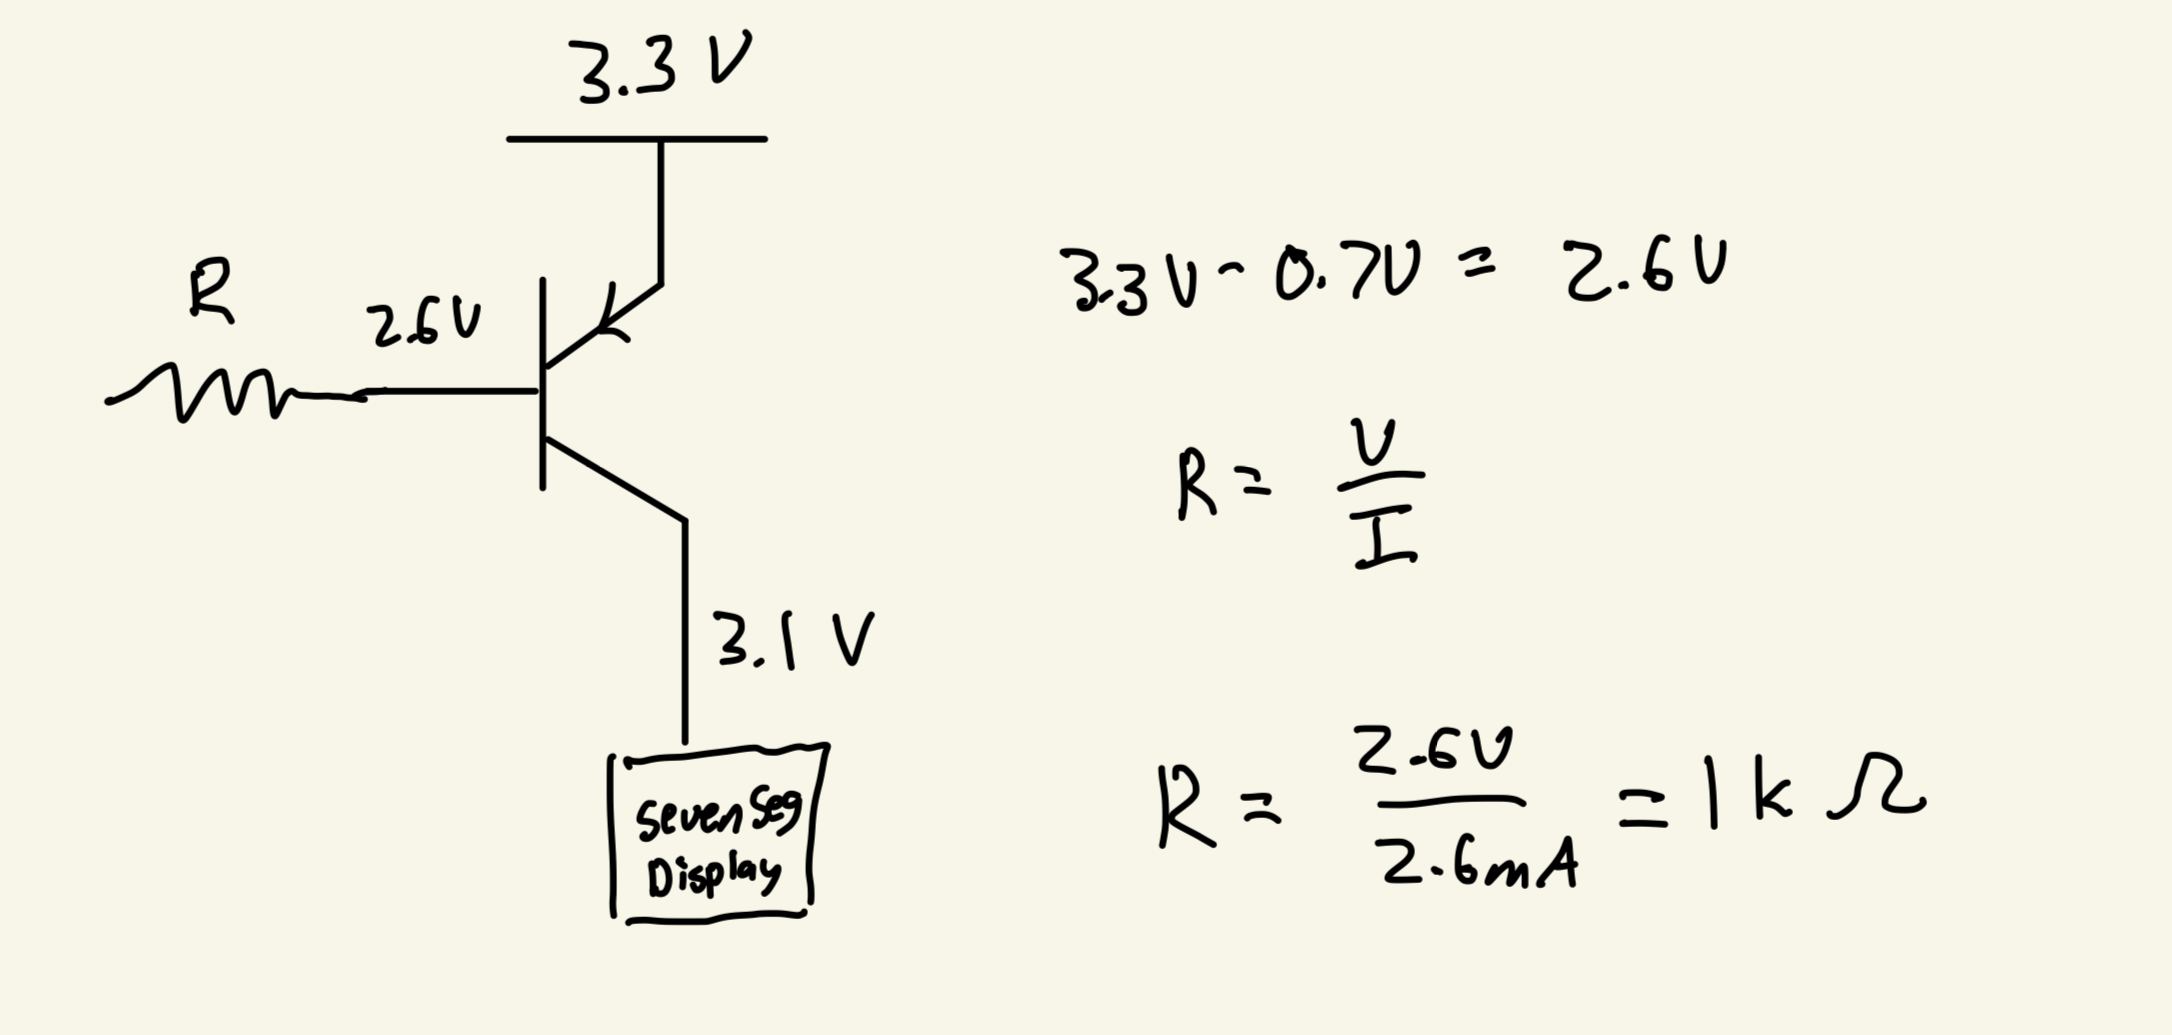 3.3 V
R
2.6V
3.1 V
Seven Seg
Display
3.3V - 0.7V = 2.6V
R = V / I
R = 2.6V / 2.6mA = 1 k Ω